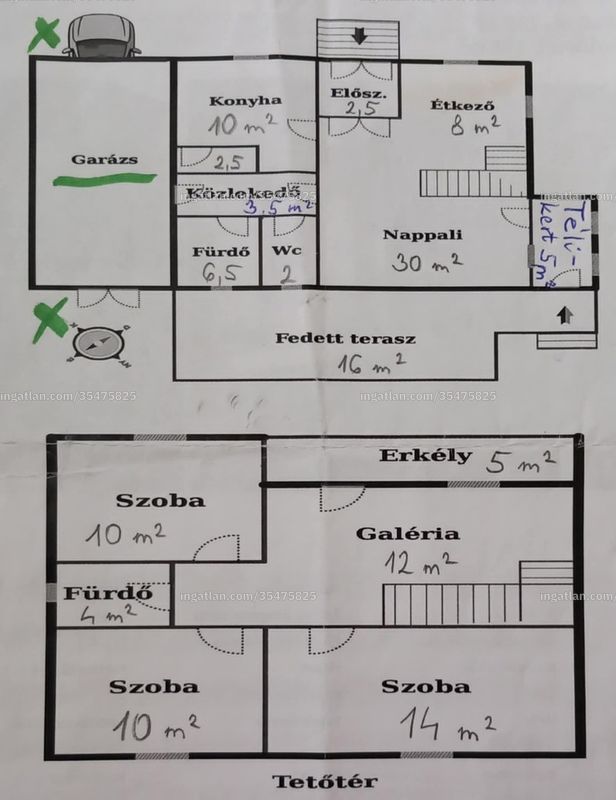 Konyha
10 m²
Elősz.
2,5
Étkező
8 m²
Garázs
2,5
Közlekedő
3,5 m²
Fürdő
6,5
Wc
2
Nappali
30 m²
Téli-
kert 5 m²
Fedett terasz
16 m²
ingatlan.com/35475825
ingatlan.com/35475825
ingatlan.com/35475825
Erkély 5 m²
Szoba
10 m²
Galéria
12 m²
Fürdő
4 m²
ingatlan.com/35475825
Szoba
10 m²
Szoba
14 m²
Tetőtér